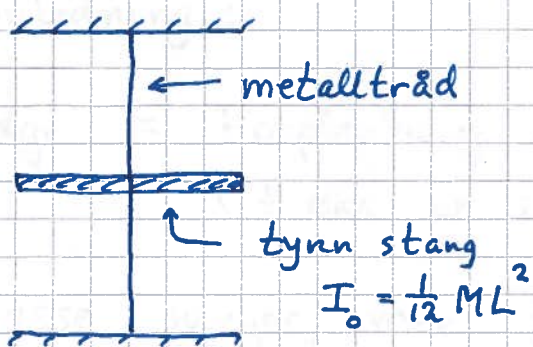 metalltråd
tynn stang
I₀ = 1/12 ML²